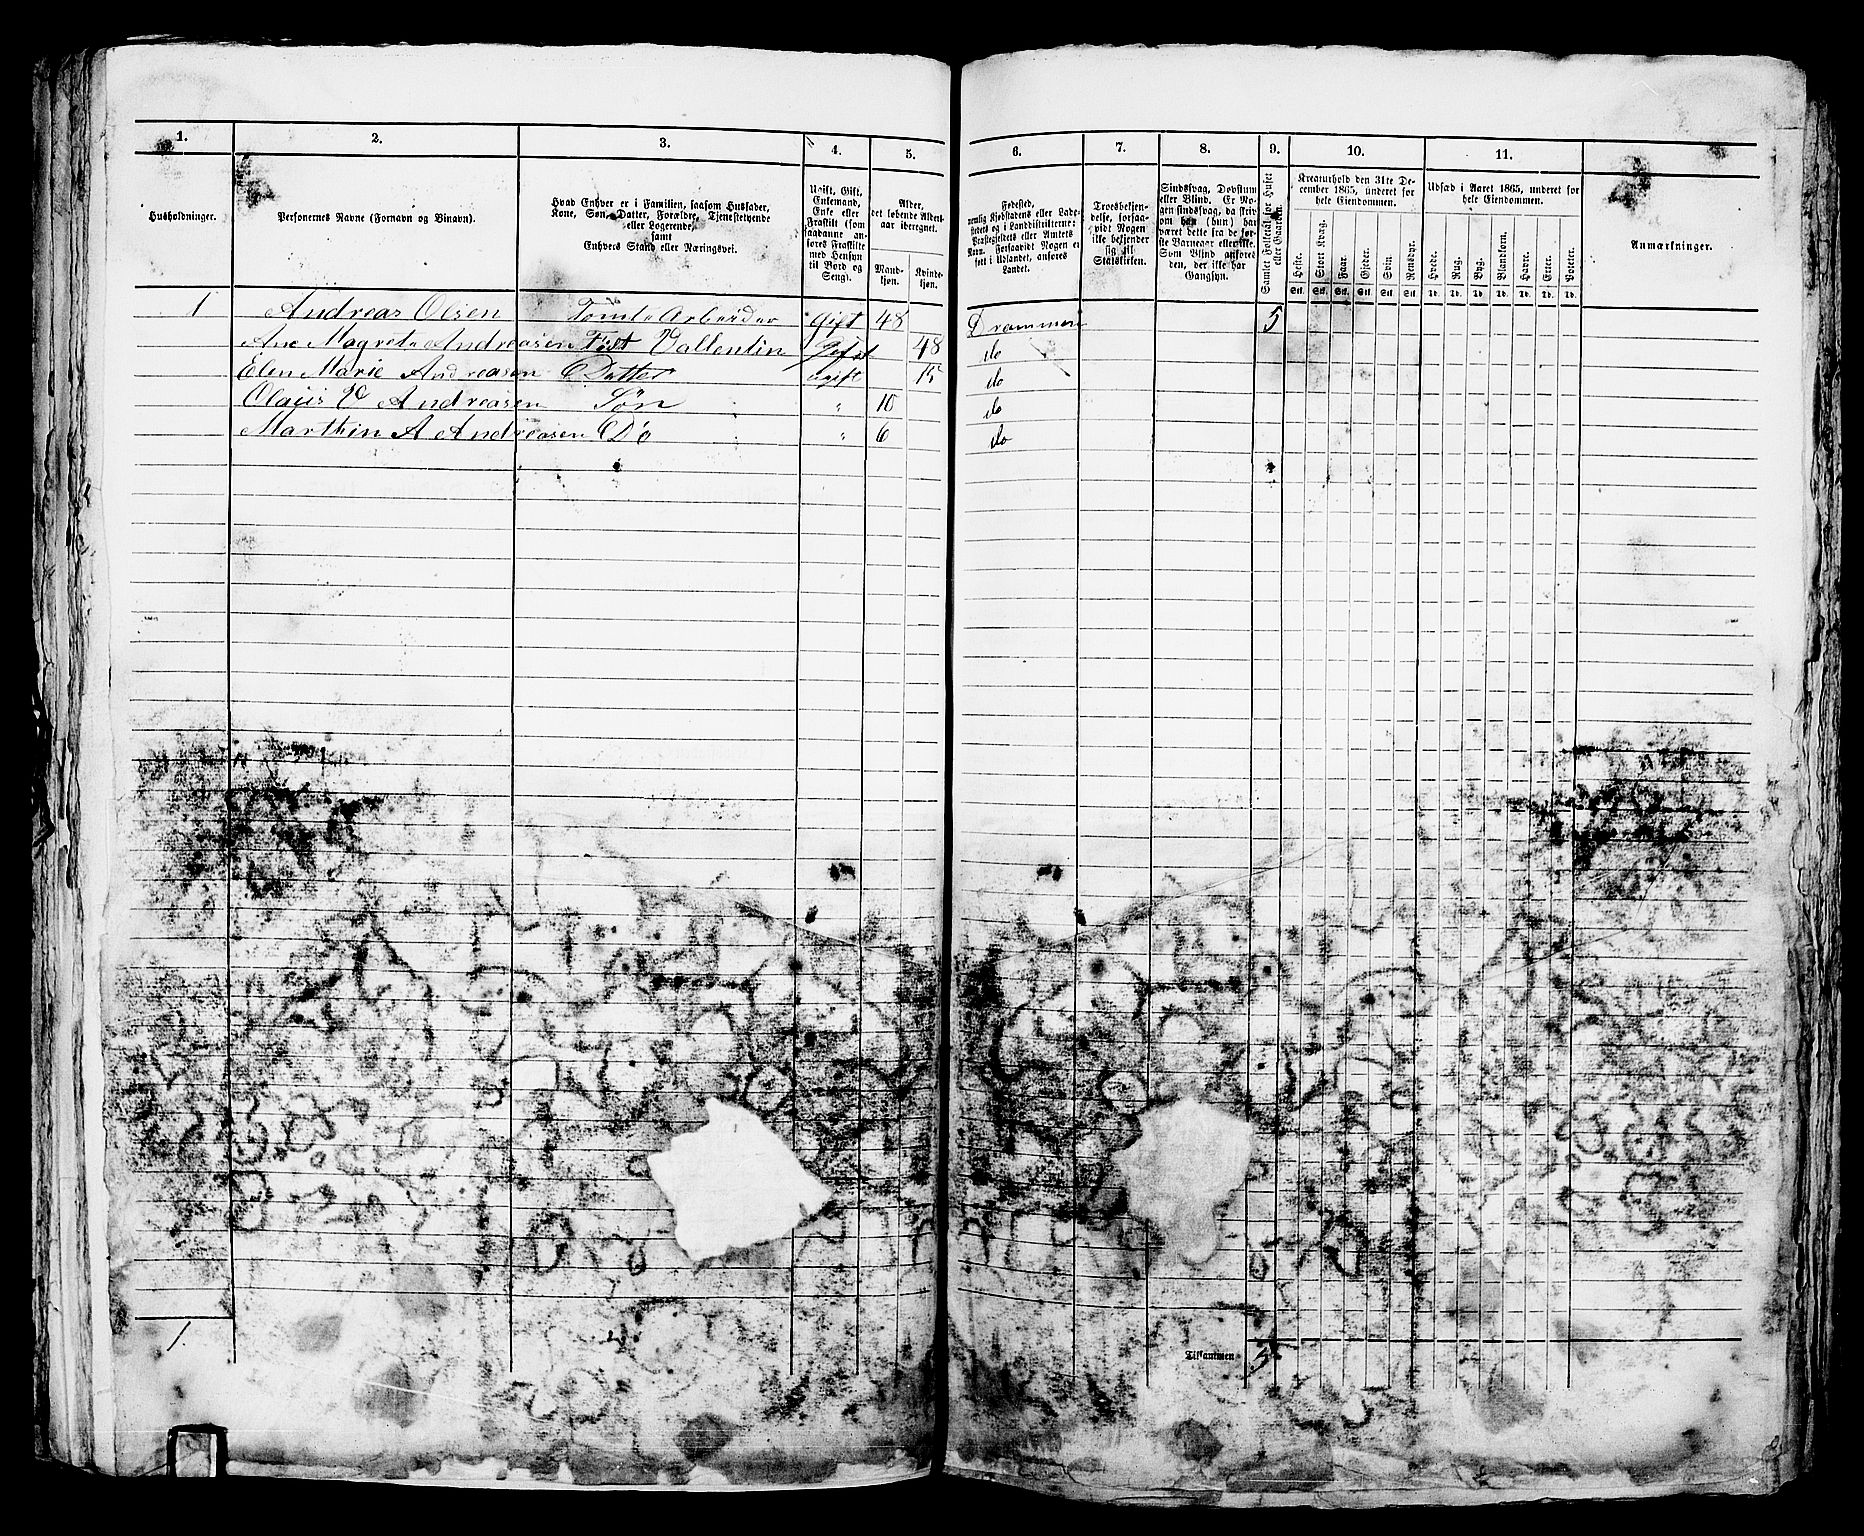 1. 2. 3. 4. 5. 6. 7. 8. 9. 10. 11.
Husholdninger.
Personernes Navne (Fornavn og Binavn).
Hvad Enhver er i Familien, saasom Husfader,
Kone, Søn, Datter, Forældre, Tjenestetyende
eller Logerende,
samt
Enhvers Stand eller Næringsvei.
Ugift, Gift,
Enkemand,
Enke eller
Fraskilt (som
saadanne an-
føres Fraskilte
med Hensyn
til Bord og
Seng).
Alder,
det løbende Alders-
aar iberegnet.
Mand-
kjøn.
Kvinde-
kjøn.
Fødested,
nemlig Kjøbstadens eller Lade-
stedets og i Landdistrikterne:
Præstegjeldets eller Amtets
Navn. Forsaavidt Nogen er
født i Udlandet, anføres
Landet.
Troesbekjen-
delse, forsaa-
vidt Nogen
ikke bekjender
sig til
Statskirken.
Sindssvag, Døvstum
eller Blind. Er No-
gen sindssvag, da skriv
om han (hun) har
været dette fra de før-
ste Barneaar eller ikke.
Som Blind anføres
den, der ikke har
Gangsyn.
Samlet Folketal for Huset
eller Gaarden.
Kreaturhold den 31te De-
cember 1865, underet for
hele Eiendommen.
Heste. Stort Kvæg. Faar. Gjeder. Svin. Rensdyr.
Stk. Stk. Stk. Stk. Stk. Stk.
Udsæd i Aaret 1865, underet for
hele Eiendommen.
Hvede. Rug. Byg. Blandkorn. Havre. Erter. Poteter.
Td. Td. Td. Td. Td. Td. Td.
Anmærkninger.
1 Andreas Olsen Tomte Arbeider Gift 48 Drammen 5
Ane Magrete Andreasen Født Vallentin Gift 48 do
Elen Marie Andreasen Datter ugift 15 do
Olaus Andreasen Søn " 10 do
Marthin A Andreasen Do " 6 do
1.
Tilsammen 5